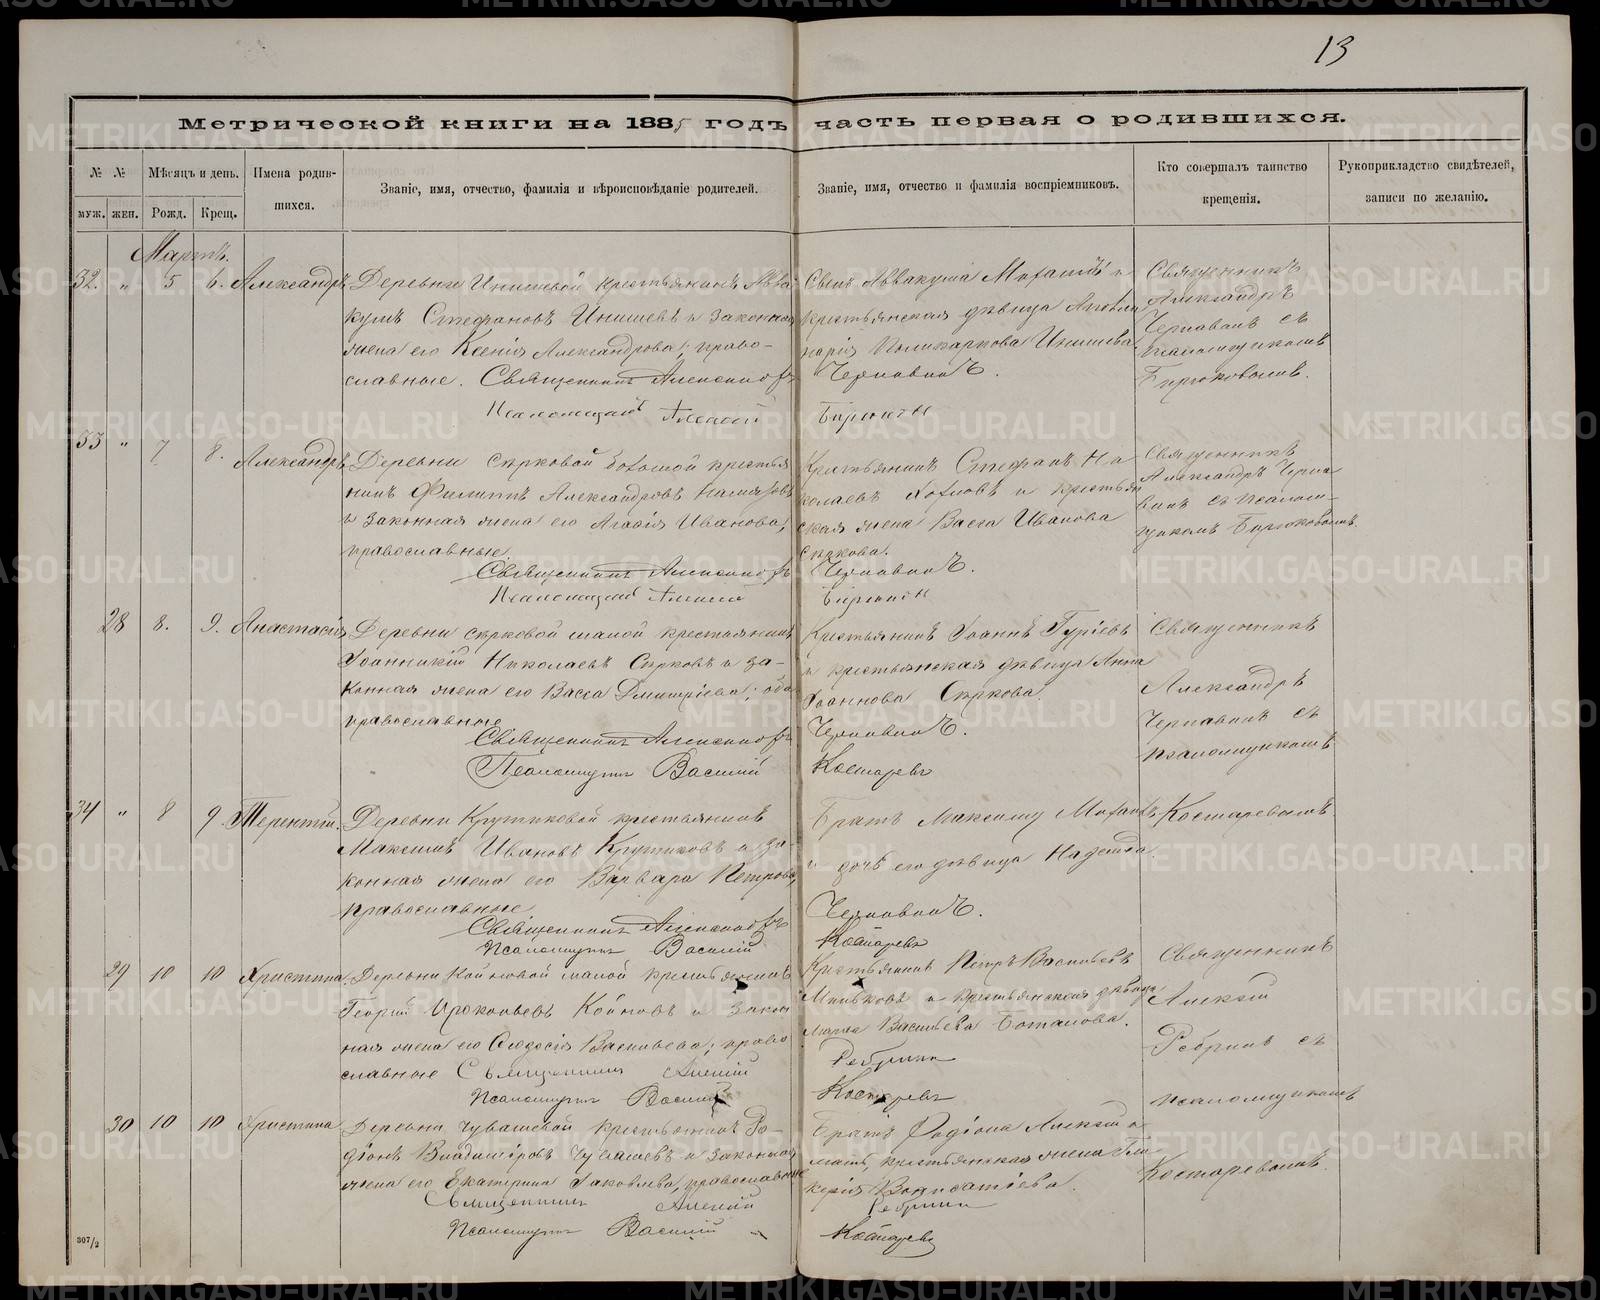 13
Метрической книги на 1885 годъ часть первая о родившихся.
№ № Мѣсяцъ и день. Имена родив-
шихся.
муж. жен. Рожд. Крещ.
Званіе, имя, отчество, фамилія и вѣроисповѣданіе родителей.
Званіе, имя, отчество и фамилія воспріемниковъ.
Кто совершалъ таинство
крещенія.
Рукоприкладство свидѣтелей,
записи по желанію.
Мартъ.
32. " 5 6. Александръ
Деревни Инишевой крестьянинъ Авва
кумъ Стефановъ Инишевъ и законная
жена его Ксенія Александрова; право-
славные. Священникъ Александръ
Псаломщикъ Алексій
крестьянская дѣвица Аполли
нарія Поликарпова Инишева.
Чернавинъ.
Бирюковъ
Священникъ
Александръ
Чернавинъ съ
псаломщикомъ
Бирюковымъ.
33 " 7 8. Александръ
Деревни Сѣрковой большой крестья
нинъ Филиппъ Александровъ
и законная жена его Агафія Иванова;
православные.
Священникъ Александръ
Псаломщикъ Алексій
Крестьянинъ Стефанъ Ни
колаевъ и крестьян
ская жена Васса Иванова
Сѣркова.
Чернавинъ.
Бирюковъ
Священникъ
Александръ Черна
винъ съ псаломщи-
комъ Бирюковымъ.
28 8. 9. Анастасія
Деревни Сѣрковой малой крестьянинъ
Іоанникій Николаевъ Сѣрковъ и за-
конная жена его Васса Димитріева; оба
православные
Священникъ Александръ
Псаломщикъ Василій
Крестьянинъ Іоаннъ Гуріевъ
и крестьянская дѣвица Анна
Іоаннова Сѣркова.
Чернавинъ.
Костаревъ
Священникъ
Александръ
Чернавинъ съ
псаломщикомъ
34 " 8 9. Терентій.
Деревни Крутиковой крестьянинъ
Максимъ Ивановъ Крутиковъ и за-
конная жена его Варвара Петрова,
православные
Священникъ Александръ
Псаломщикъ Василій
Братъ Максиму
и дочь его дѣвица Надежда.
Чернавинъ.
Костаревъ
Костаревымъ.
29 10 10 Христина.
Деревни Койновой малой крестьянинъ
Георгій Прокопьевъ Койновъ и закон
ная жена его Ѳеодосія Васильева; право
славные Священникъ Алексій
Псаломщикъ Василій
Крестьянинъ Петръ Васильевъ
и крестьянская дѣвица
Марѳа Васильева Боталова.
Ребринъ
Костаревъ
Священникъ
Алексій
Ребринъ съ
псаломщикомъ
30 10 10 Христина
Деревни Чувашевой крестьянинъ Ро-
діонъ Владиміровъ Чувашевъ и законная
жена его Екатерина Іаковлева, православные
Священникъ Алексій
Псаломщикъ Василій
Братъ Родіона Алексій и
мать, крестьянская жена Гли
керія
Ребринъ
Костаревъ
Костаревымъ.
307/2
METRIKI.GASO-URAL.RU